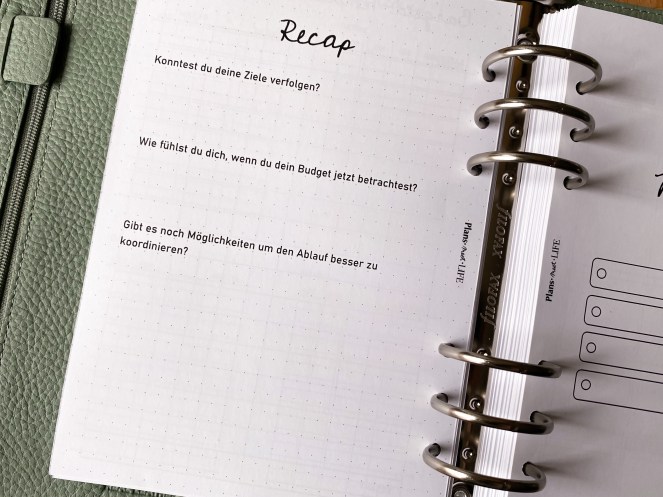 Recap
Konntest du deine Ziele verfolgen?
Wie fühlst du dich, wenn du dein Budget jetzt betrachtest?
Gibt es noch Möglichkeiten um den Ablauf besser zu
koordinieren?
Plans·that·LIFE
filofax
filofax
Plans·that·LIFE